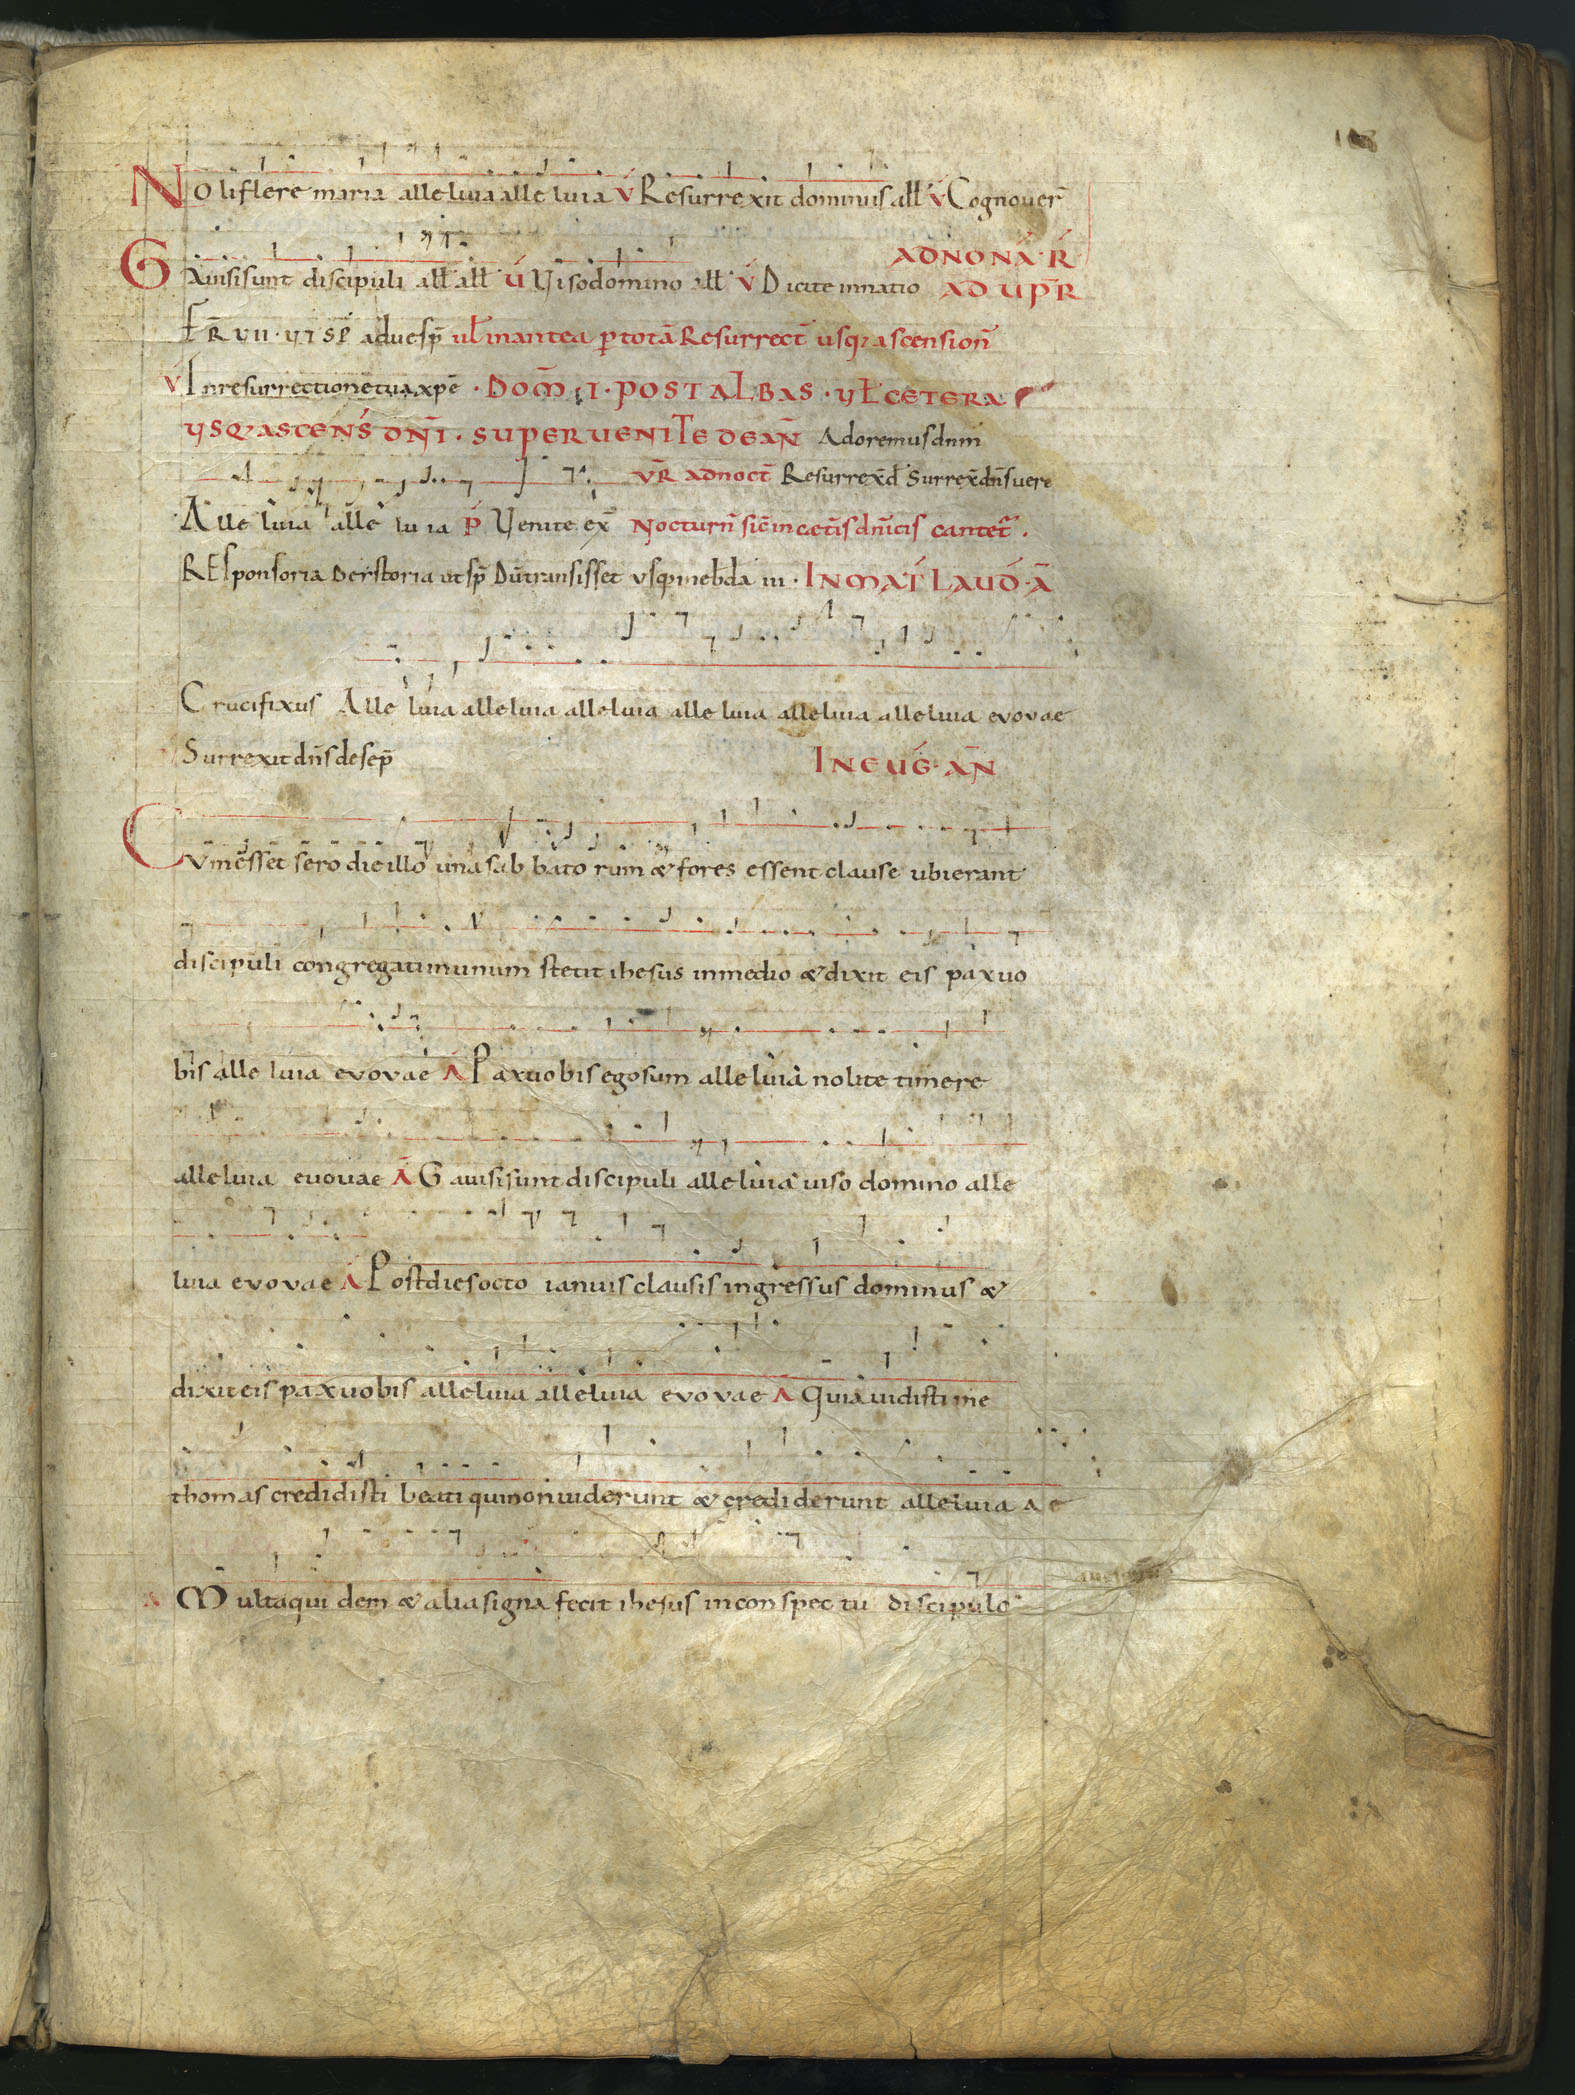 No li flere maria alle luia alle luia V̇ Resurrexit dominus all̄ V̇ Cognouer̄
AD NONA R̄
Gauisi sunt discipuli all̄ all̄ V̇ Viso domino all̄ V̇ Dicite in natio AD VP̄R
ad uesp̄ ul̄ in antea p totā Resurrect̄ usq; ascension̄
V̇ In resurrectione tua xp̄e · DOM̄ · I · POST ALBAS · VL̄ CETERA
VSQ; ASCENS̄ DN̄I · SUPER VENITE DE AN̄ Adoremus dnm
VR̄ AD NOCT̄ Resurrex̄ d̄ Surrex̄ dn̄s uere
Alle luia alle lu ia P̄ Venite ex̄ Nocturn̄ sic̄ in cæt̄is dn̄icis cantet̄ .
REsponsoria ut sp̄ Dū transisset usq; in ebd̄a iii · IN MAT̄ LAUD̄ · Ā
Crucifixus Alle luia alleluia alleluia alle luia alleluia alleluia evovae
Surrexit dn̄s de sep̄
IN EUḠ · AN̄
Cum esset sero die illo una sab bato rum & fores essent clause ubi erant
discipuli congregati in unum stetit ihesus in medio & dixit eis pax uo
bis alle luia evovae Ā Pax uobis ego sum alleluia nolite timere
alleluia euouae Ā Gauisi sunt discipuli alleluia uiso domino alle
luia evovae Ā Post dies octo ianuis clausis ingressus dominus &
dixit eis pax uobis alleluia alleluia evovae Ā Quia uidisti me
thomas credidisti beati qui non uiderunt & crediderunt alleluia
A Multa qui dem & alia signa fecit ihesus in con spec tu discipulo